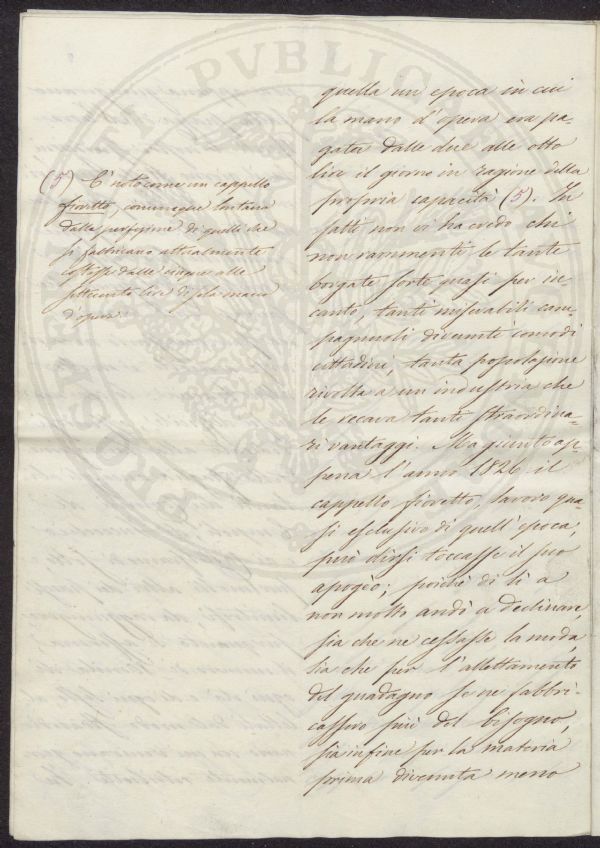 quella un epoca in cui
la mano d'opera era pa-
gata dalle due alle otto
lire il giorno in ragione della
propria capacità (5). In
fatti non vi ha credo chi
non rammenti le tante
borgate sorte quasi per in-
canto, tanti miserabili cam-
pagnuoli divenuti comodi
cittadini, tanta popolazione
rivolta a un industria che
le recava tanti straordina-
ri vantaggi. Ma giunto ap-
pena l'anno 1826 il
cappello fioretto, lavoro qua-
si esclusivo di quell'epoca,
può dirsi toccasse il suo
apogèo; poichè di lì a
non molto andò a declinare,
sia che ne cessasse la moda,
sia che per l'allettamento
del guadagno se ne fabbri-
cassero più del bisogno,
sia infine per la materia
prima divenuta meno
(5) È noto come un cappello
fioretto, comunque lontano
dalla perfezione di quelli che
si fabbricano attualmente
costasse dalle cinque alle
settecento lire di sola mano
d'opera
PVBLICAE
PROSPERITATI